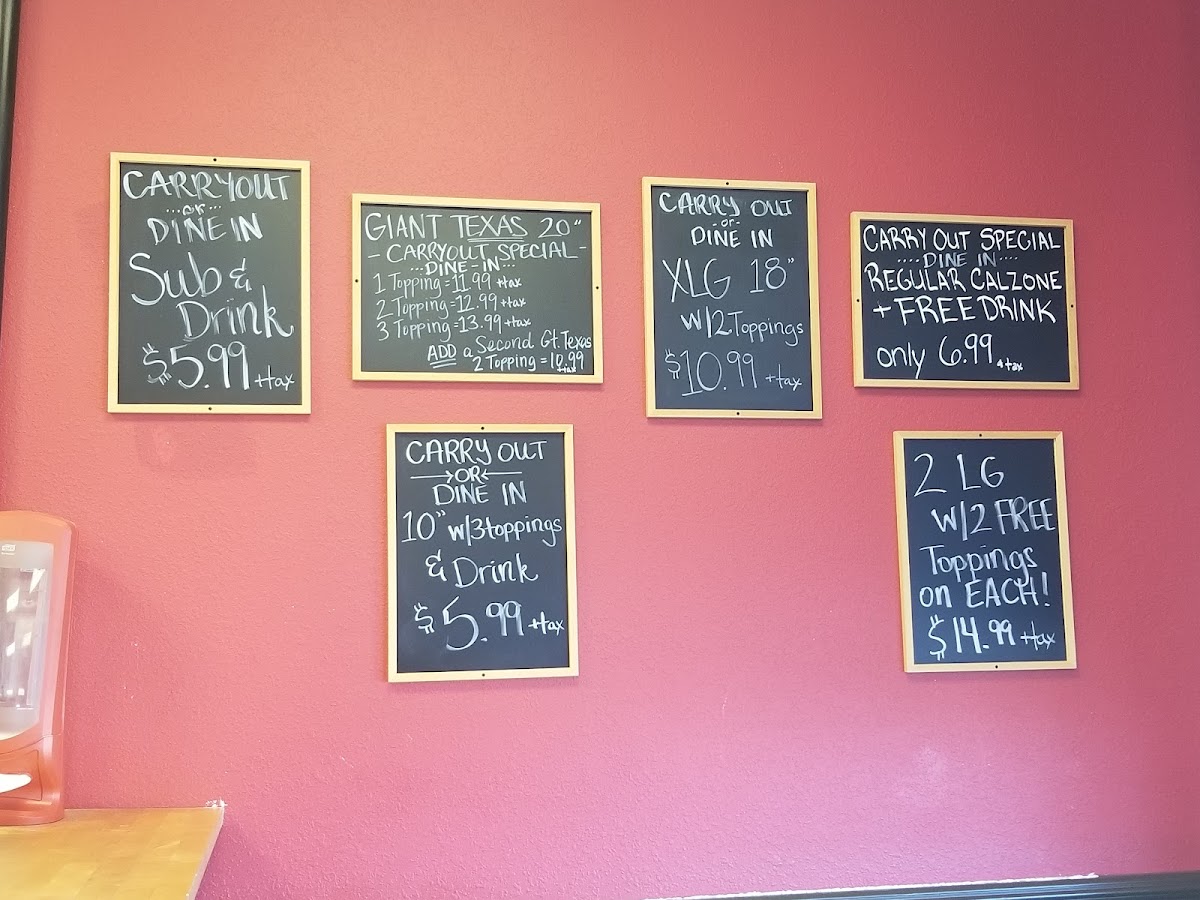 CARRYOUT
...or...
DINE IN
Sub &
Drink
$5.99 +tax
GIANT TEXAS 20"
- CARRYOUT SPECIAL -
...DINE-IN...
1 Topping=11.99 +tax
2 Topping=12.99 +tax
3 Topping=13.99 +tax
ADD a Second Gt. Texas
2 Topping=10.99
+tax
CARRY OUT
-or-
DINE IN
XLG 18"
w/2 Toppings
$10.99 +tax
CARRY OUT SPECIAL
....DINE IN....
REGULAR CALZONE
+ FREE DRINK
only 6.99 +tax
CARRY OUT
→OR←
DINE IN
10" w/3 toppings
& Drink
$5.99 +tax
2 LG
w/2 FREE
Toppings
on EACH!
$14.99 +tax